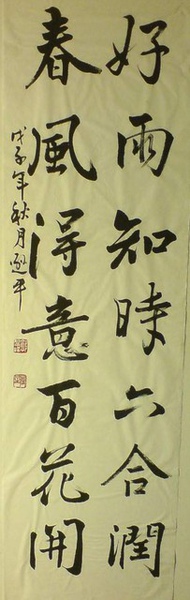 好雨知時六合潤
春風得意百花開
戊子年秋月逸平